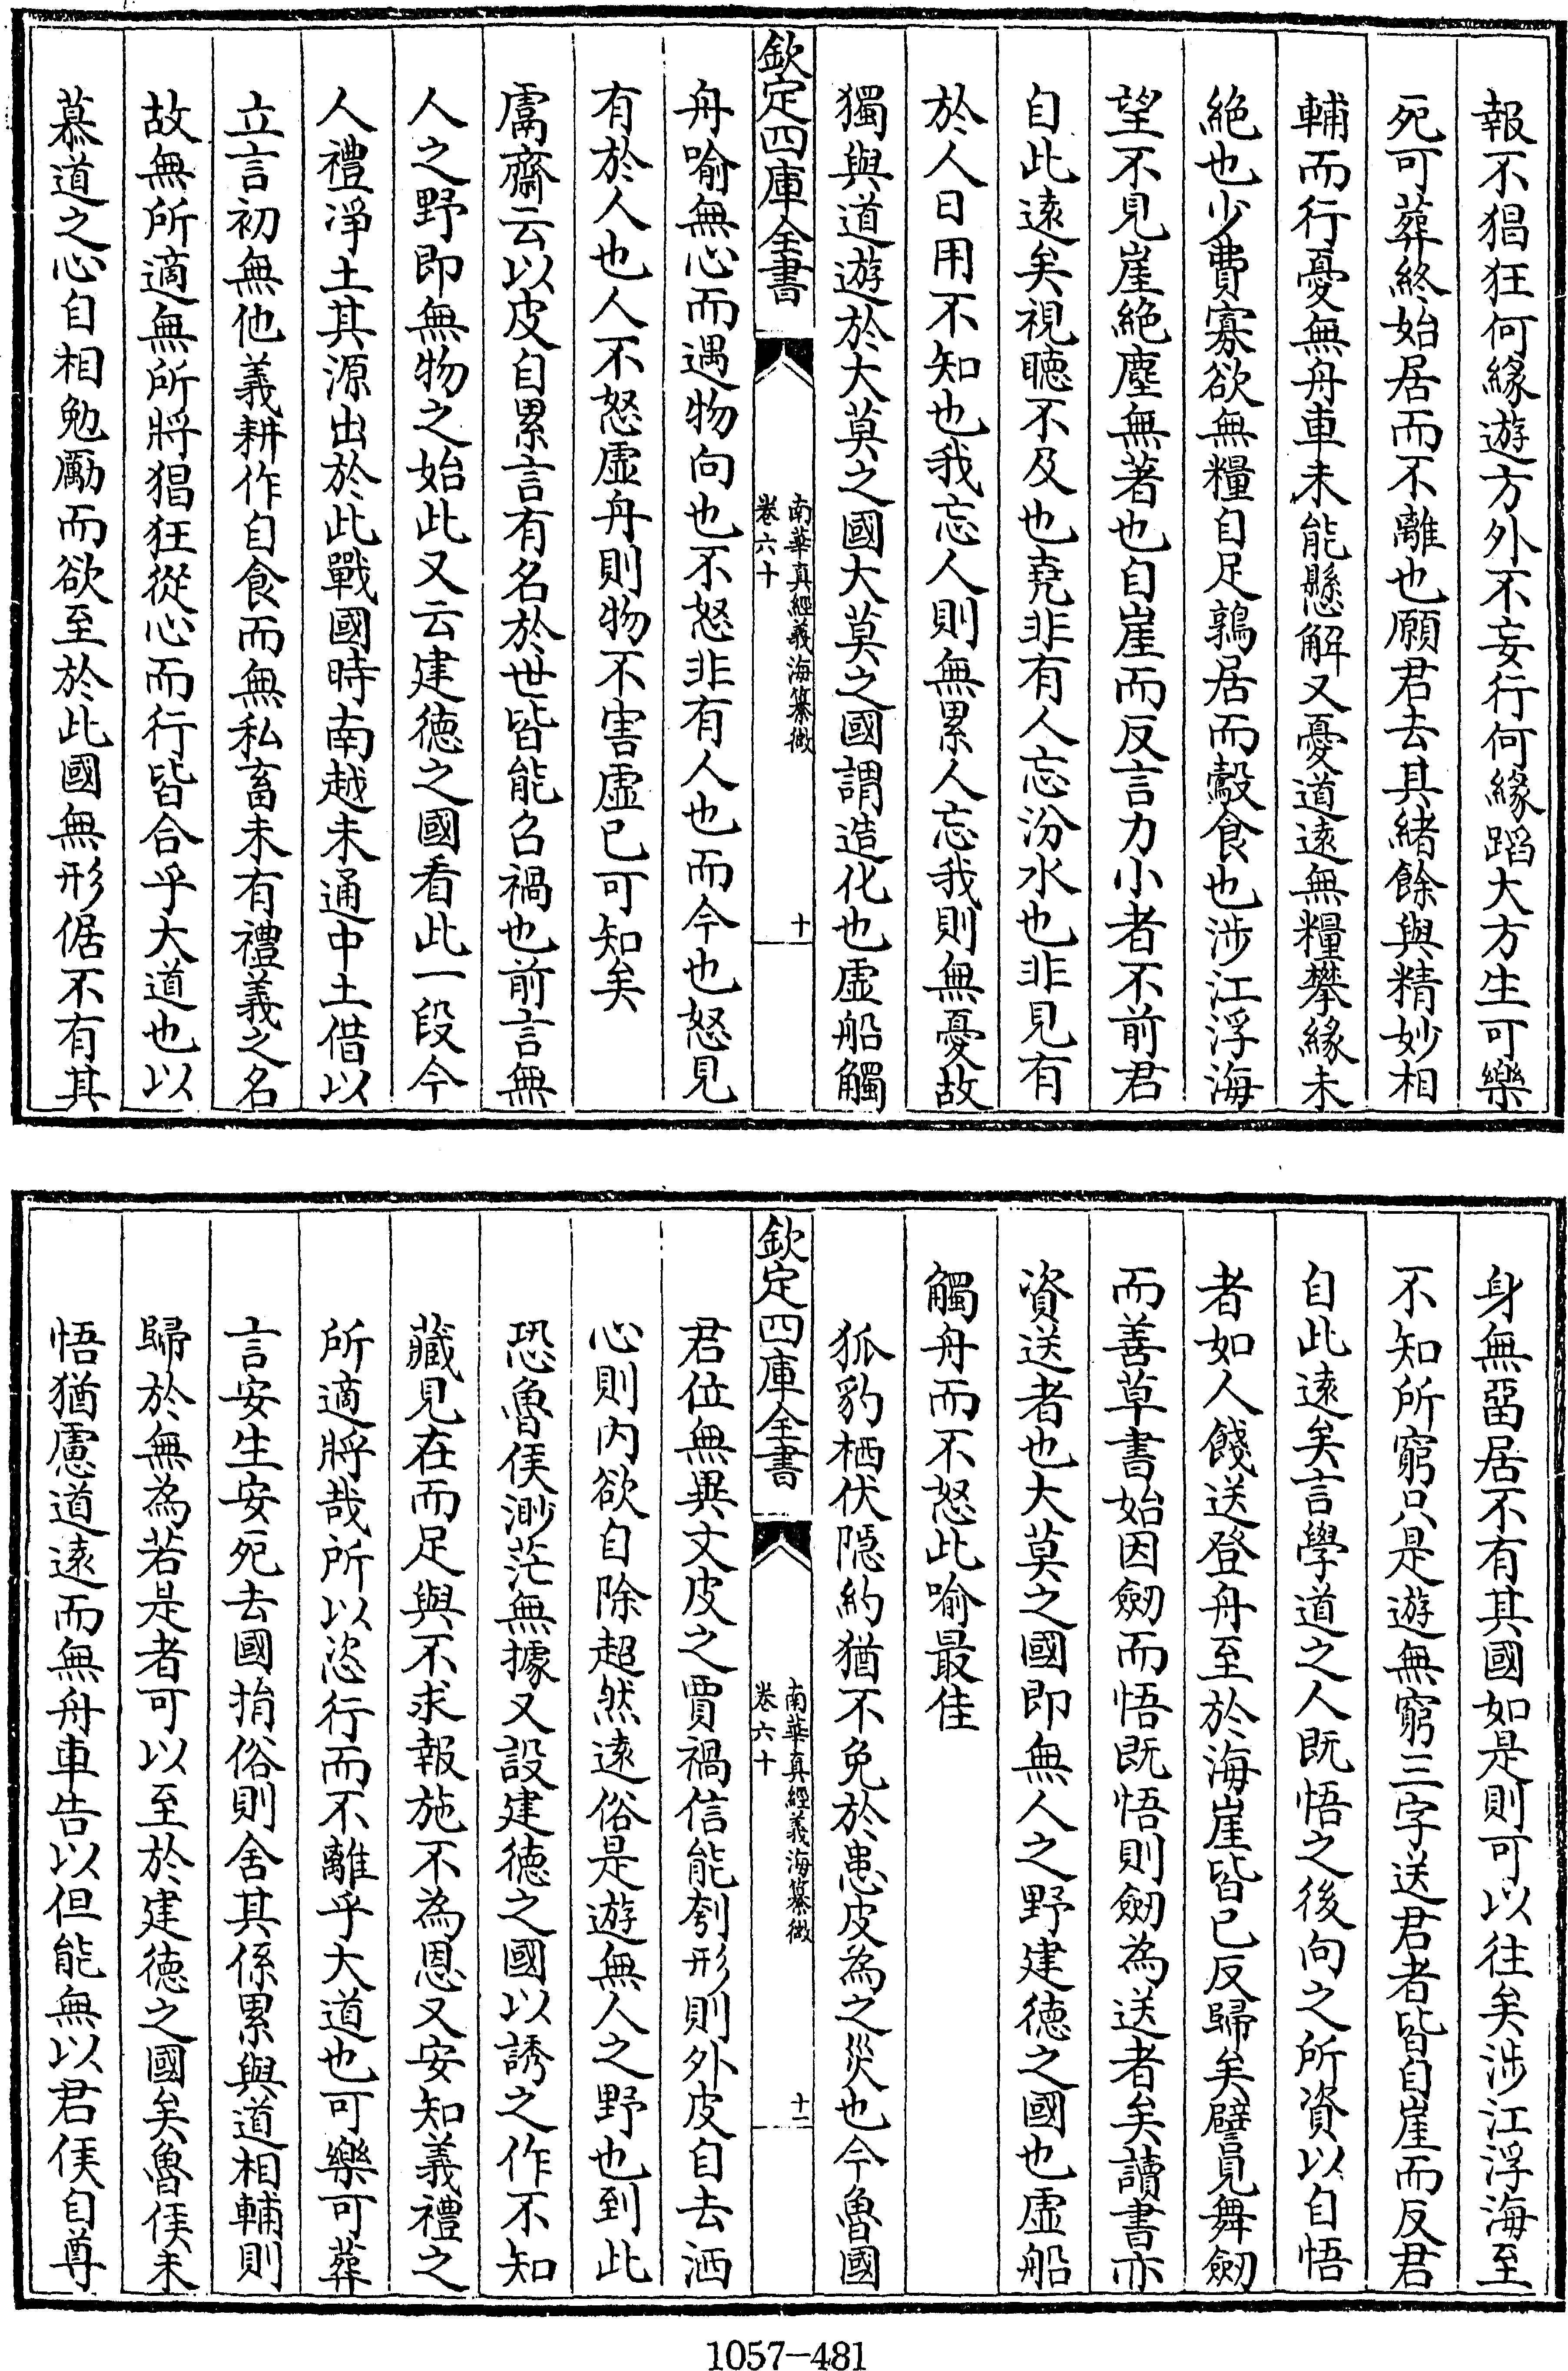 報不猖狂何緣遊方外不妄行何緣蹈大方生可樂
死可葬終始居而不離也願君去其緒餘與精妙相
輔而行憂無舟車未能懸解又憂道遠無糧攀緣未
絶也少費寡欲無糧自足鶉居而鷇食也涉江浮海
望不見崖絶塵無著也自崖而反言力小者不前君
自此遠矣視聴不及也堯非有人忘汾水也非見有
於人日用不知也我忘人則無累人忘我則無憂故
獨與道遊於大莫之國大莫之國謂造化也虛船觸
欽定四庫全書
南華真經義海纂微
卷六十
十
舟喻無心而遇物向也不怒非有人也而今也怒見
有於人也人不怒虛舟則物不害虛已可知矣
鬳齋云以皮自累言有名於世皆能召禍也前言無
人之野即無物之始此又云建徳之國看此一段今
人禮淨土其源出於此戰國時南越未通中土借以
立言初無他義耕作自食而無私畜未有禮義之名
故無所適無所將猖狂從心而行皆合乎大道也以
慕道之心自相勉勵而欲至於此國無形倨不有其
身無畱居不有其國如是則可以往矣涉江浮海至
不知所窮只是遊無窮三字送君者皆自崖而反君
自此遠矣言學道之人既悟之後向之所資以自悟
者如人餞送登舟至於海崖皆已反歸矣譬見舞劒
而善草書始因劒而悟既悟則劒為送者矣讀書亦
資送者也大莫之國即無人之野建徳之國也虛船
觸舟而不怒此喻最佳
狐豹栖伏隠約猶不免於患皮為之災也今魯國
欽定四庫全書
南華真經義海纂微
卷六十
十一
君位無異文皮之賈禍信能刳形則外皮自去洒
心則内欲自除超然逺俗是遊無人之野也到此
恐魯侯渺茫無據又設建徳之國以誘之作不知
藏見在而足與不求報施不為恩又安知義禮之
所適將哉所以恣行而不離乎大道也可樂可葬
言安生安死去國捐俗則舍其係累與道相輔則
歸於無為若是者可以至於建徳之國矣魯侯未
悟猶慮道遠而無舟車告以但能無以君侯自尊
1057-481